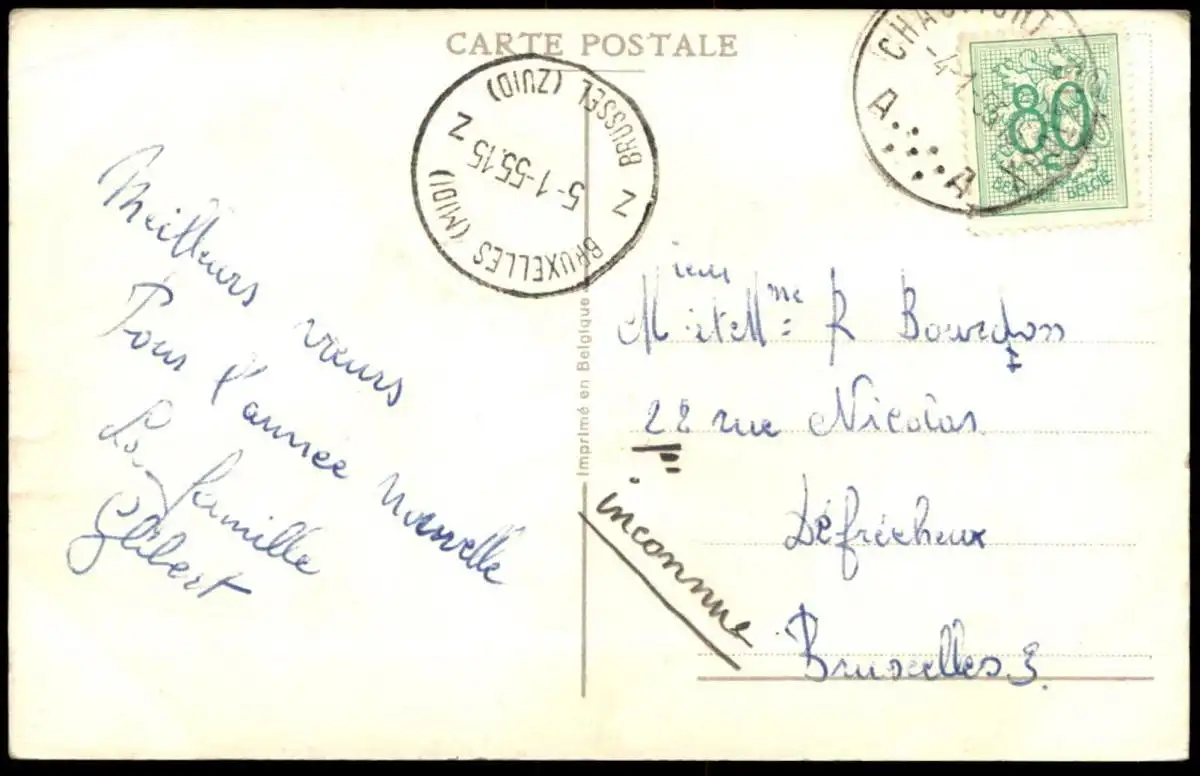 CARTE POSTALE
CHAUMONT
-4-1
A A
80
BELGIQUE BELGIË
BRUXELLES (MIDI)
5-1-55.15 Z
BRUSSEL (ZUID)
Z
Meilleurs vœurs
Pour l'année nouvelle
La famille
Glibert
Imprimé en Belgique
Mieur et Mme R Bourdon
22 rue Nicolas
Défrêcheux
Bruxelles 3.
inconnue